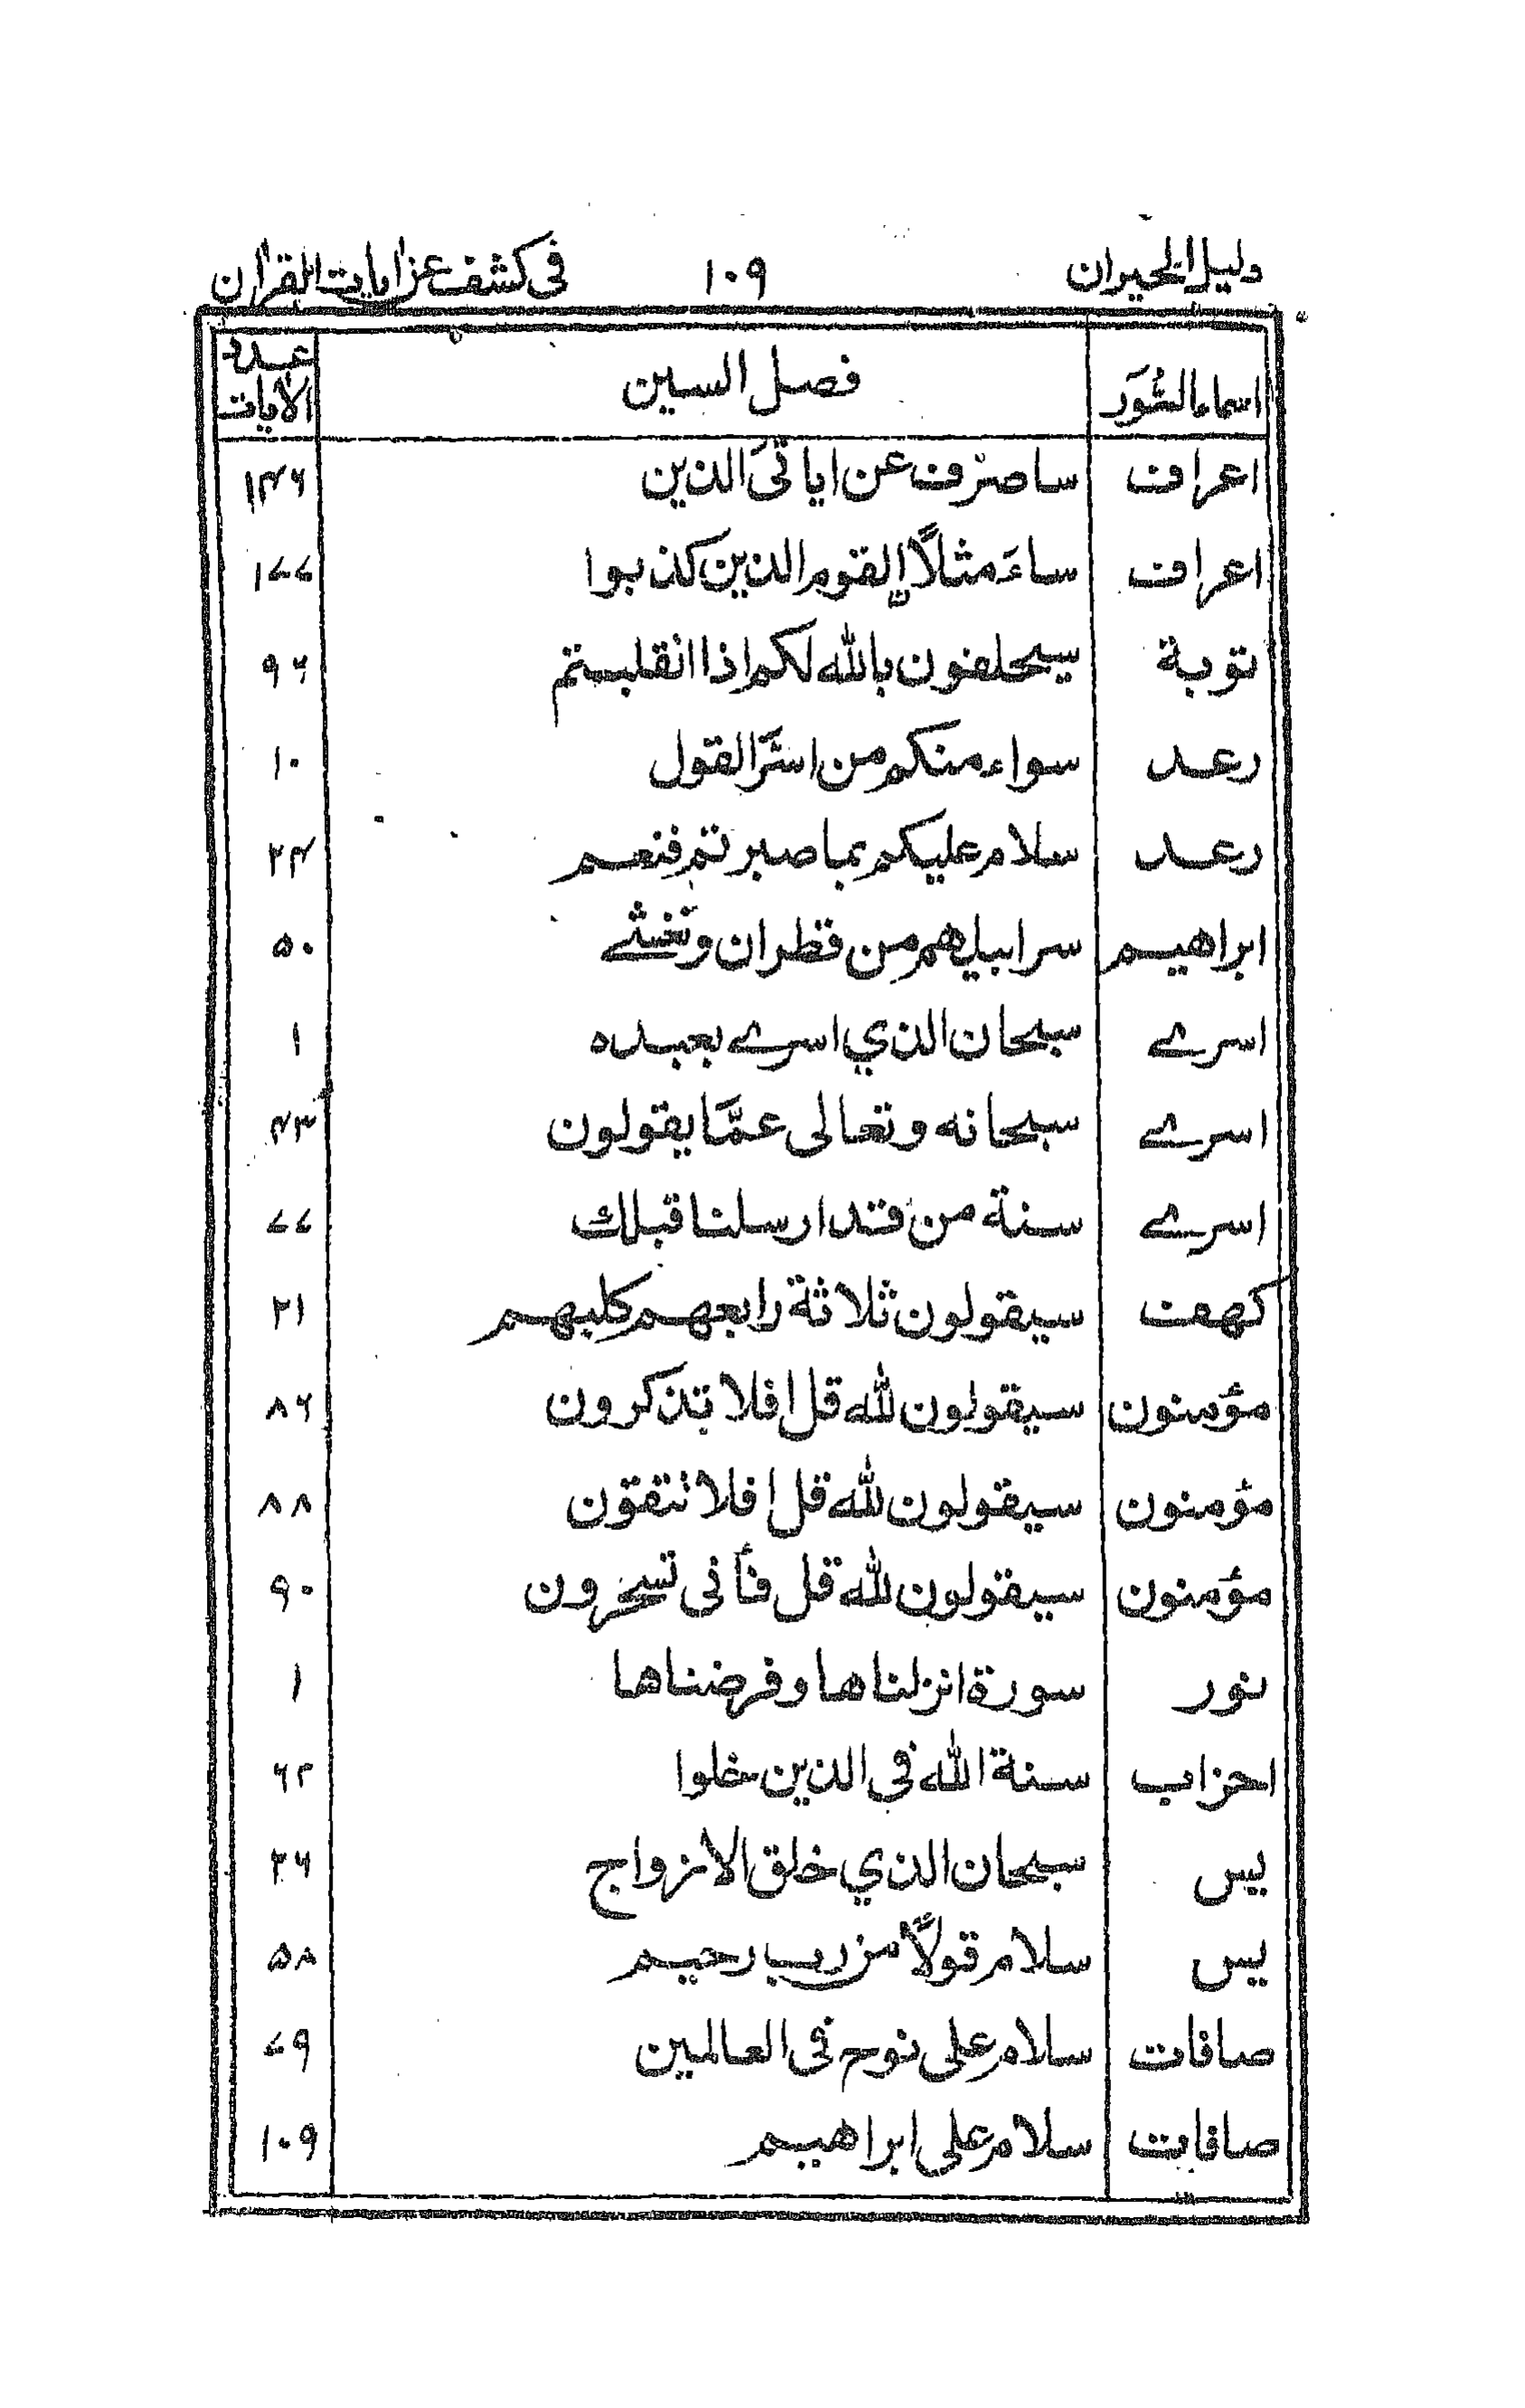 دليل الحيران ١٠٩ فى كشف عن ايات القران
اسماء السُّوَر فصل السين عدد الايات
اعراف ساصرف عن اياتىَ الذين ١٤٦
اعراف ساءَ مثلاً القوم الذين كذبوا ١٧٧
توبة سيحلفون بالله لكم اذا انقلبتم ٩٦
رعد سواء منكم من اسرَّ القول ١٠
رعد سلام عليكم بما صبرتم فنعم ٢٤
ابراهيم سرابيلهم من قطران وتغشے ٥٠
اسرے سبحان الذي اسرے بعبده ١
اسرے سبحانه وتعالى عمَّا يقولون ٤٣
اسرے سنة من قد ارسلنا قبلك ٧٧
كهف سيقولون ثلاثة رابعهم كلبهم ٢١
مؤمنون سيقولون لله قل افلا تذكرون ٨٦
مؤمنون سيقولون لله قل افلا تتقون ٨٨
مؤمنون سيقولون لله قل فأنى تسحرون ٩٠
نور سورة انزلناها وفرضناها ١
احزاب سنة الله فى الذين خلوا ٦٢
يس سبحان الذي خلق الازواج ٣٦
يس سلام قولاً من رب رحيم ٥٨
صافات سلام على نوح فى العالمين ٧٩
صافات سلام على ابراهيم ١٠٩